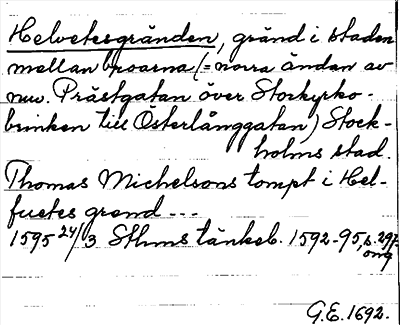 Helvetesgränden, gränd i staden
mellan broarna (= norra ändan av
nuv. Prästgatan över Storkyrko-
brinken till Österlånggatan) Stock-
holms stad.
Thomas Michelsons tompt i Hel-
fuetes grend ---
1595 24/3 Sthms tänkeb. 1592-95, s. 297.
omg
G.E. 1692.